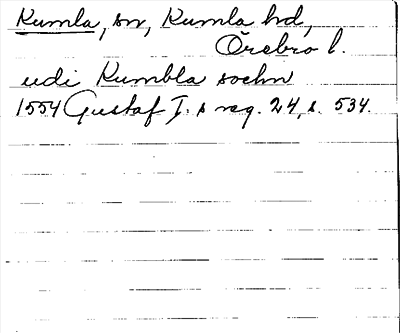 Kumla, sn, Kumla hd,
Örebro l.
udi Kumbla soehn
1554 Gustaf I. s reg. 24, s. 534.